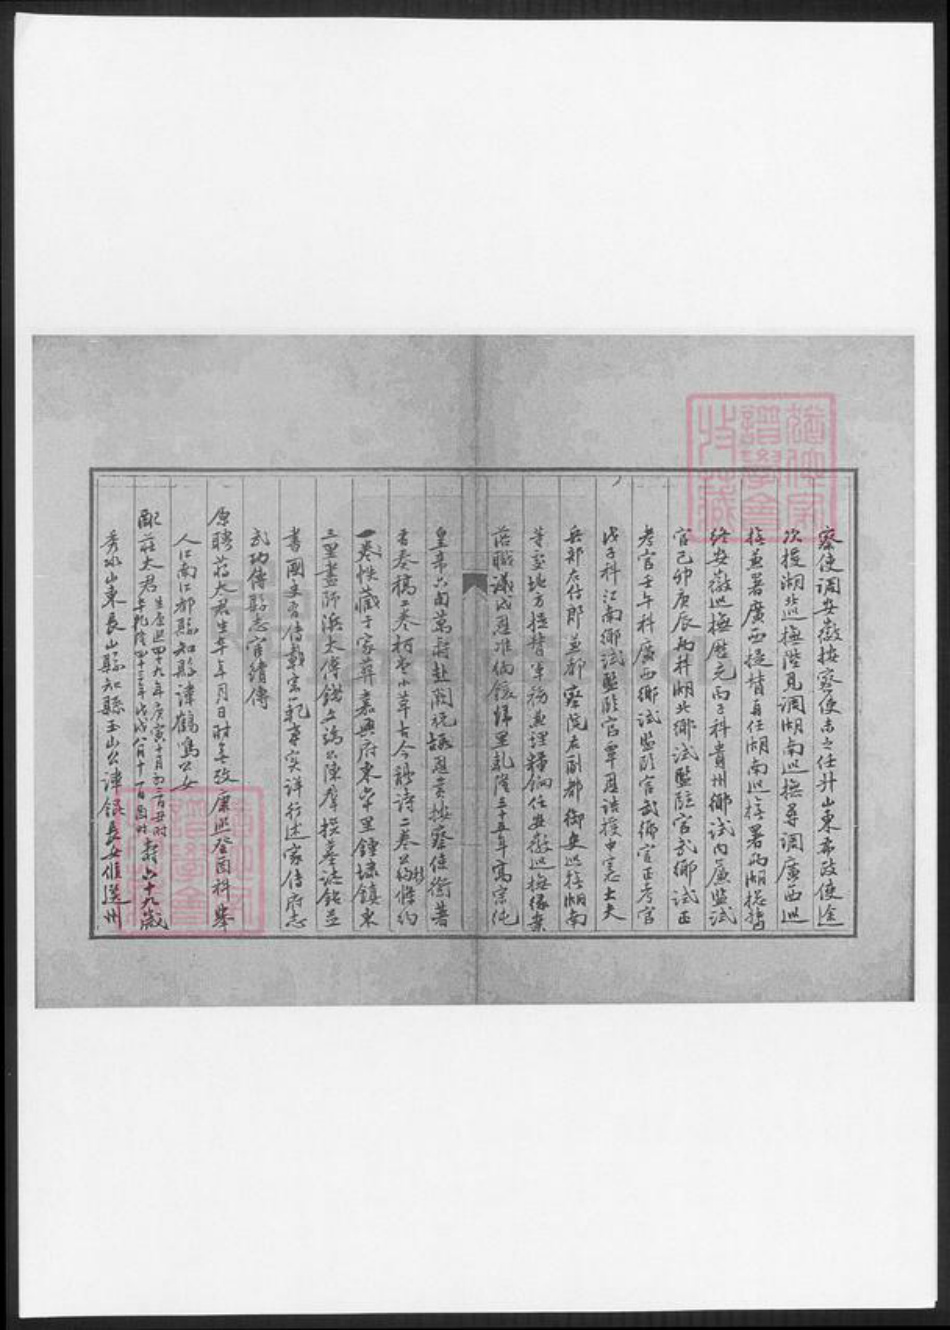 察使調安徽按察使未之任升山東布政使途
次授湖北巡撫陛見調湖南巡撫尋調廣西巡
撫兼署廣西提督再任湖南巡撫署兩湖總督
終安徽巡撫歷充丙子科貴州鄉試內簾監試
官己卯庚辰兩科湖北鄉試監臨官武鄉試正
考官壬午科廣西鄉試監臨官武鄉官正考官
戊子科江南鄉試監臨官覃恩誥授中憲大夫
兵部右侍郎兼都察院右副都御史巡撫湖南
等處地方提督軍務兼理糧餉任安徽巡撫緣案
落職議戍恩准納鍰歸里乾隆三十五年高宗純
皇帝六旬萬壽赴闕祝嘏恩賞按察使銜著
有奏稿二卷 小草古今 詩二卷公約 約
一卷帙藏于家葬嘉興府東 里鍾埭鎮東
三里畫師浜太傅錢文端公陳羣撰墓誌銘並
書國史有傳載 事實詳行述家傳府志
武功傳縣志官績傳
原聘莊太君生卒年月日時無考康熙癸酉科舉
人江南江都縣知縣諱鶴 公女
配莊太君生康熙四十九年庚寅十月初三日丑時卒乾隆四十三年戊戌八月十一日酉時壽六十九歲
秀水山東長山縣知縣玉山公諱錕長女候選州